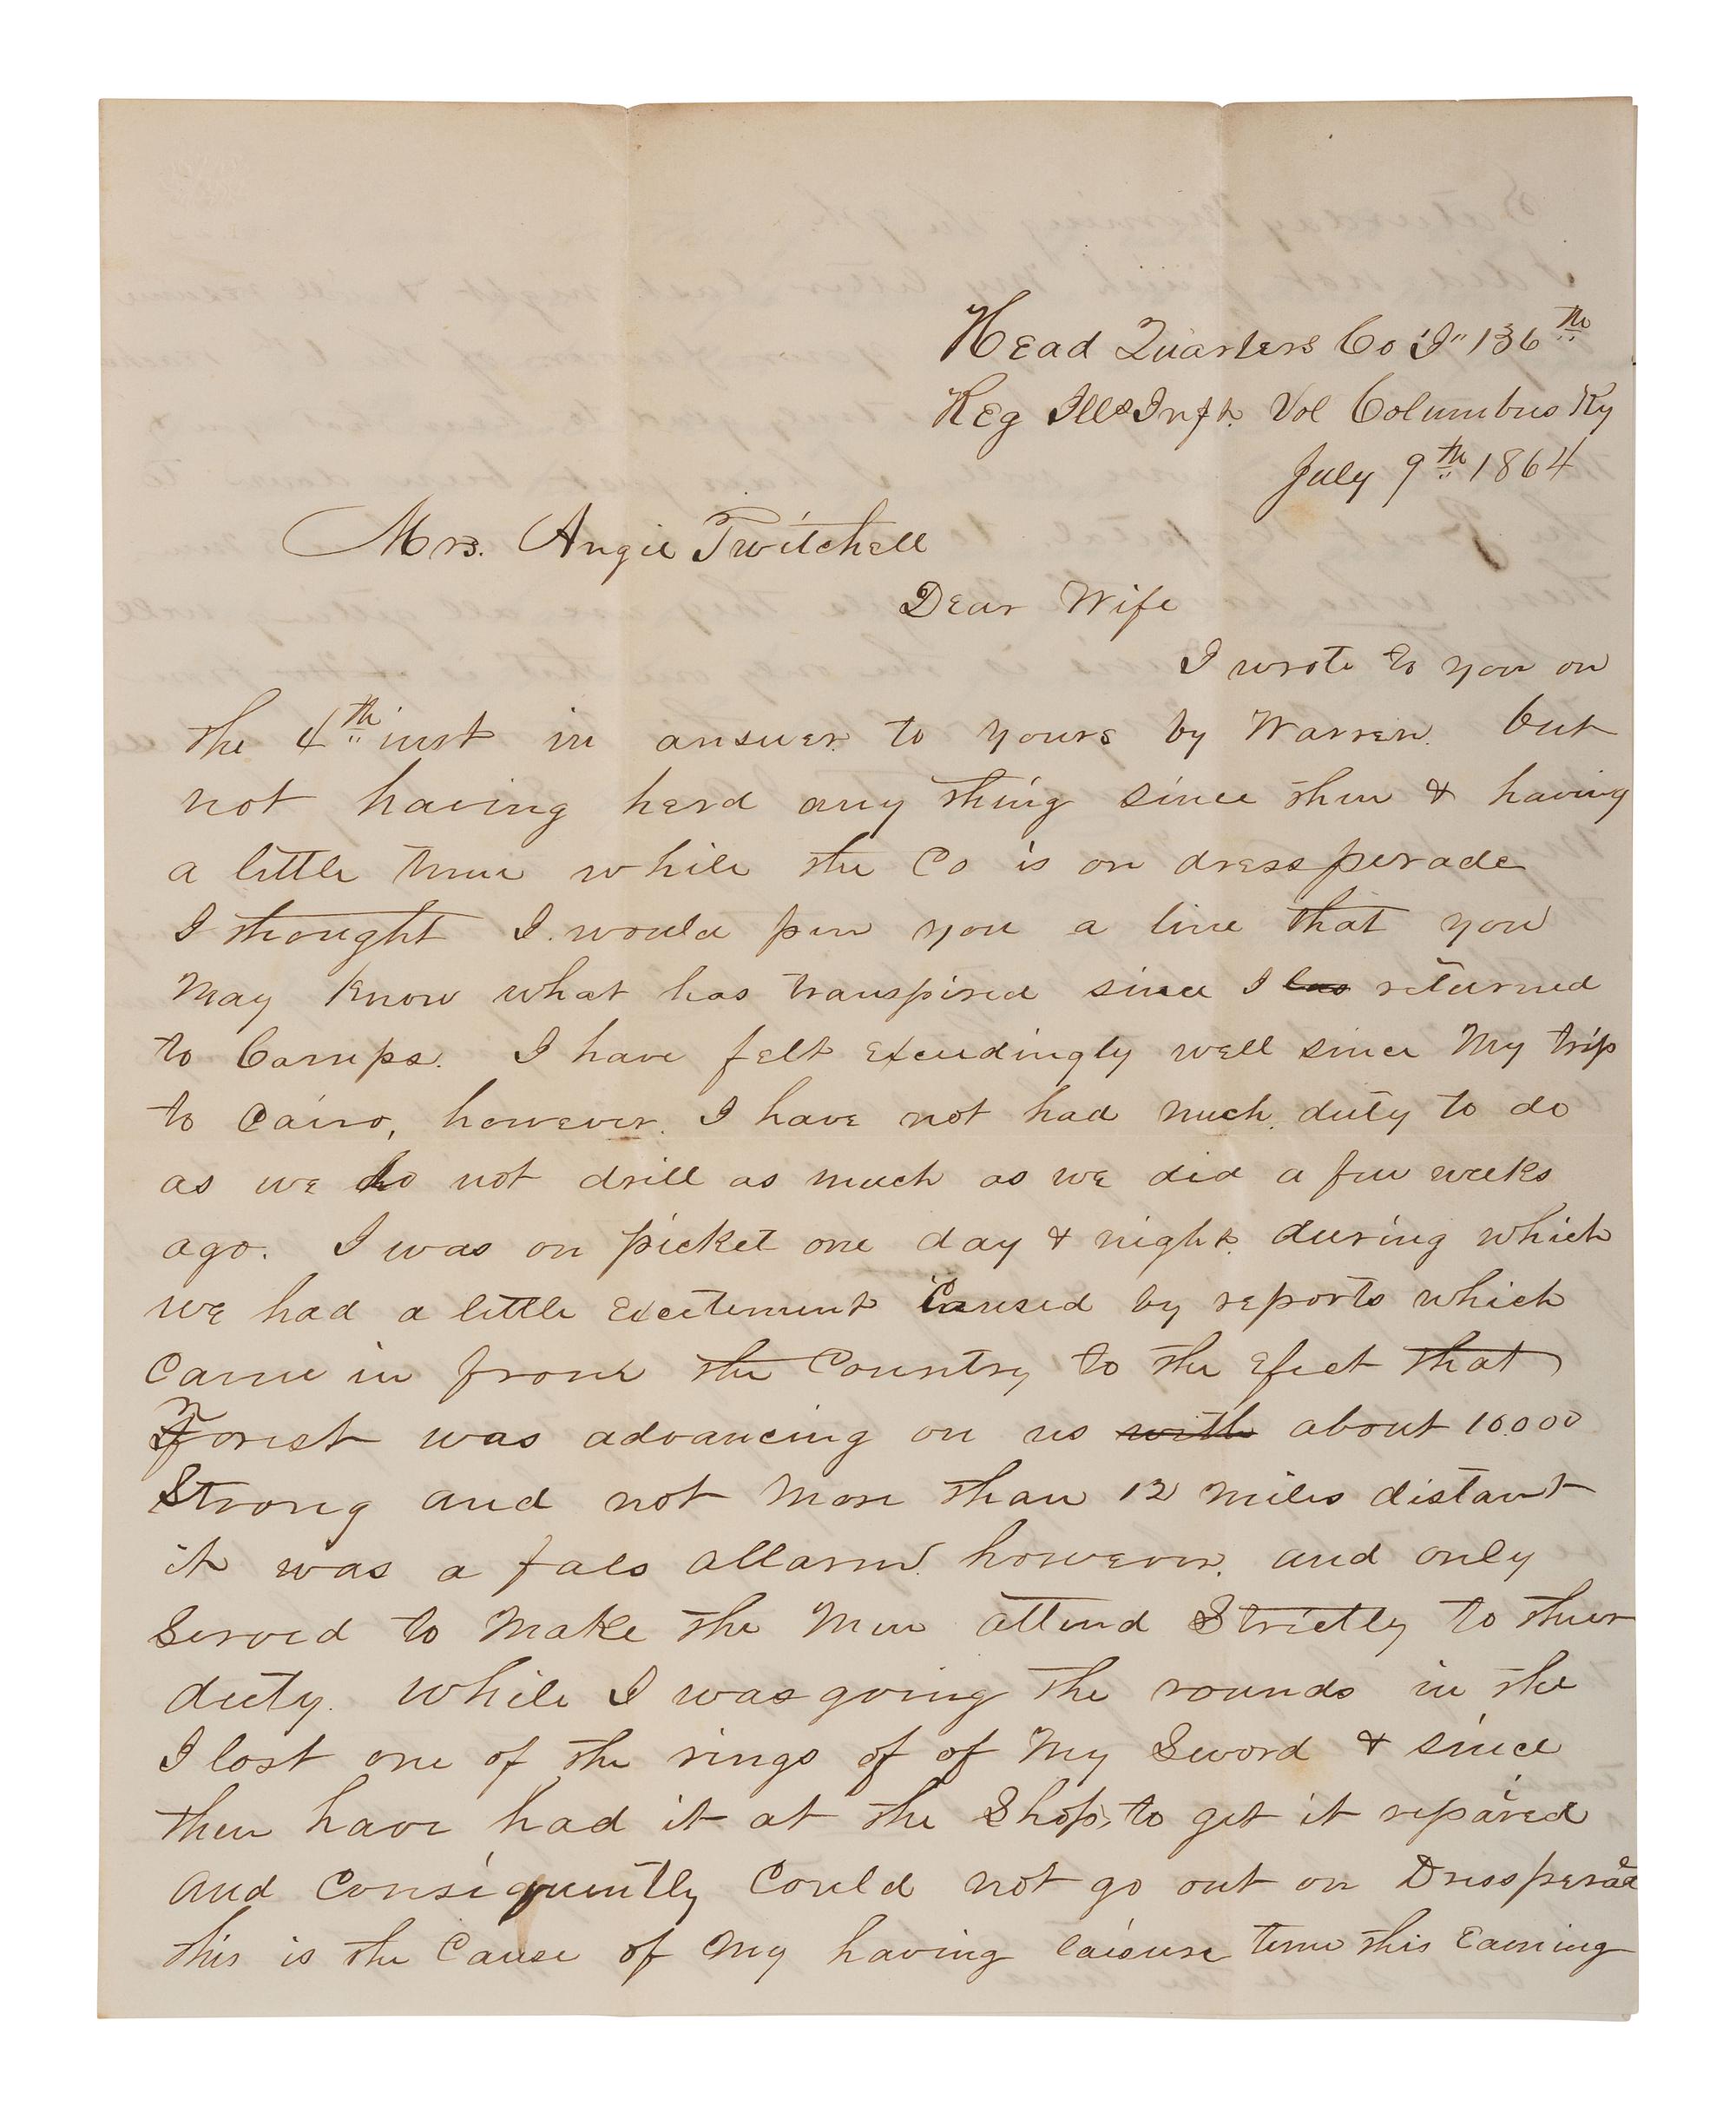 Head Quarters Co "I" 136th
Reg Ills Inft. Vol Columbus Ky
July 9th 1864
Mrs. Angie Twitchell
Dear Wife
I wrote to you on
the 4th inst in answer to yours by Warren. but
not having herd any thing since then & having
a little time while the Co is on dressperade
I thought I would pen you a line that you
May know what has transpired since I has returned
to Camps. I have felt exceudingly well since My trip
to Cairo, however. I have not had much duty to do
as we do not drill as much as we did a few weeks
ago. I was on picket one day & night. during which
we had a little Excitement Caused by reports which
Came in from the Country to the Efect that
Forest was advancing on us with about 10.000
Strong and not More than 12 miles distant
it was a fals allarm. however. and only
Served to Make the Men attend Strictly to thier
duty. while I was going the rounds in the
I lost one of the rings of of My Sword & since
then have had it at the Shop, to get it repared
and Consiquently Could not go out on Dressperade
this is the Cause of My having laisure time this Eavning